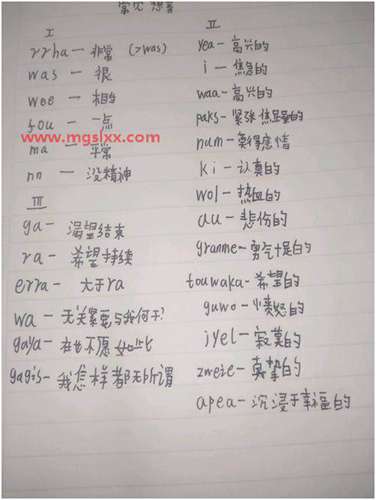 常见想音
I
rrha — 非常 (>was)
was — 很
wee — 相当
sou — 一点
www.mgslxx.com
ma — 平常
nn — 没精神
III
ga — 渴望结束
ra — 希望持续
erra — 大于ra
wa — 无关紧要与我何干?
gaya — 再也不愿如此
gagis — 我怎样都无所谓
II
yea — 高兴的
i — 焦急的
waa — 高兴的
paks — 紧张焦虑的
num — 莫得感情
ki — 认真的
wol — 热血的
au — 悲伤的
granme — 勇气十足的
touwaka — 希望的
guwo — 愤怒的
iyel — 寂寞的
zweie — 真挚的
apea — 沉浸于幸福的